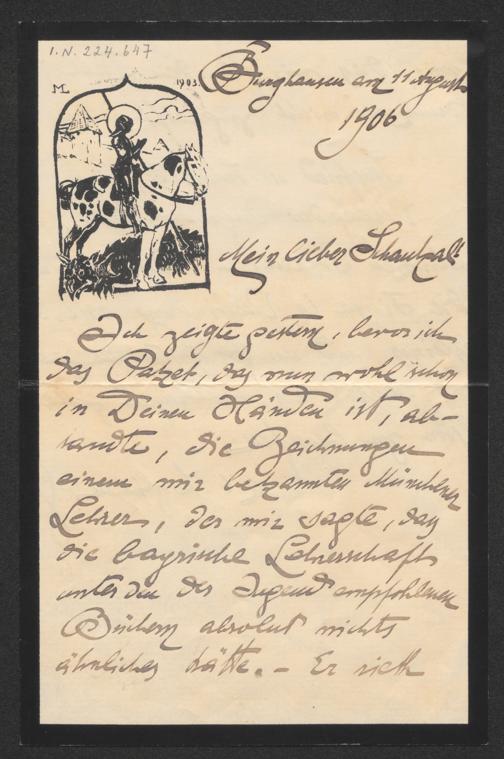 I.N. 224.647
ML 1903.
Burghausen am 11 August
1906
Mein lieber Schaukal!
Ich zeigte gestern, bevor ich
das Packet, das nun wohl schon
in Deinen Händen ist, ab-
sandte, die Zeichnungen
einem mir bekannten Münchener
Lehrer, der mir sagte, daß
die bayrische Lehrerschaft
unter den der Jugend empfohlenen
Büchern absolut nichts
ähnliches hätte. – Er rieth